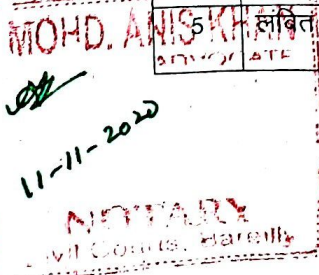 MOHD. ANIS KHAN
5 लंबित
ADVOCATE
11-11-2020
NOTARY
Civil Courts, Bareilly